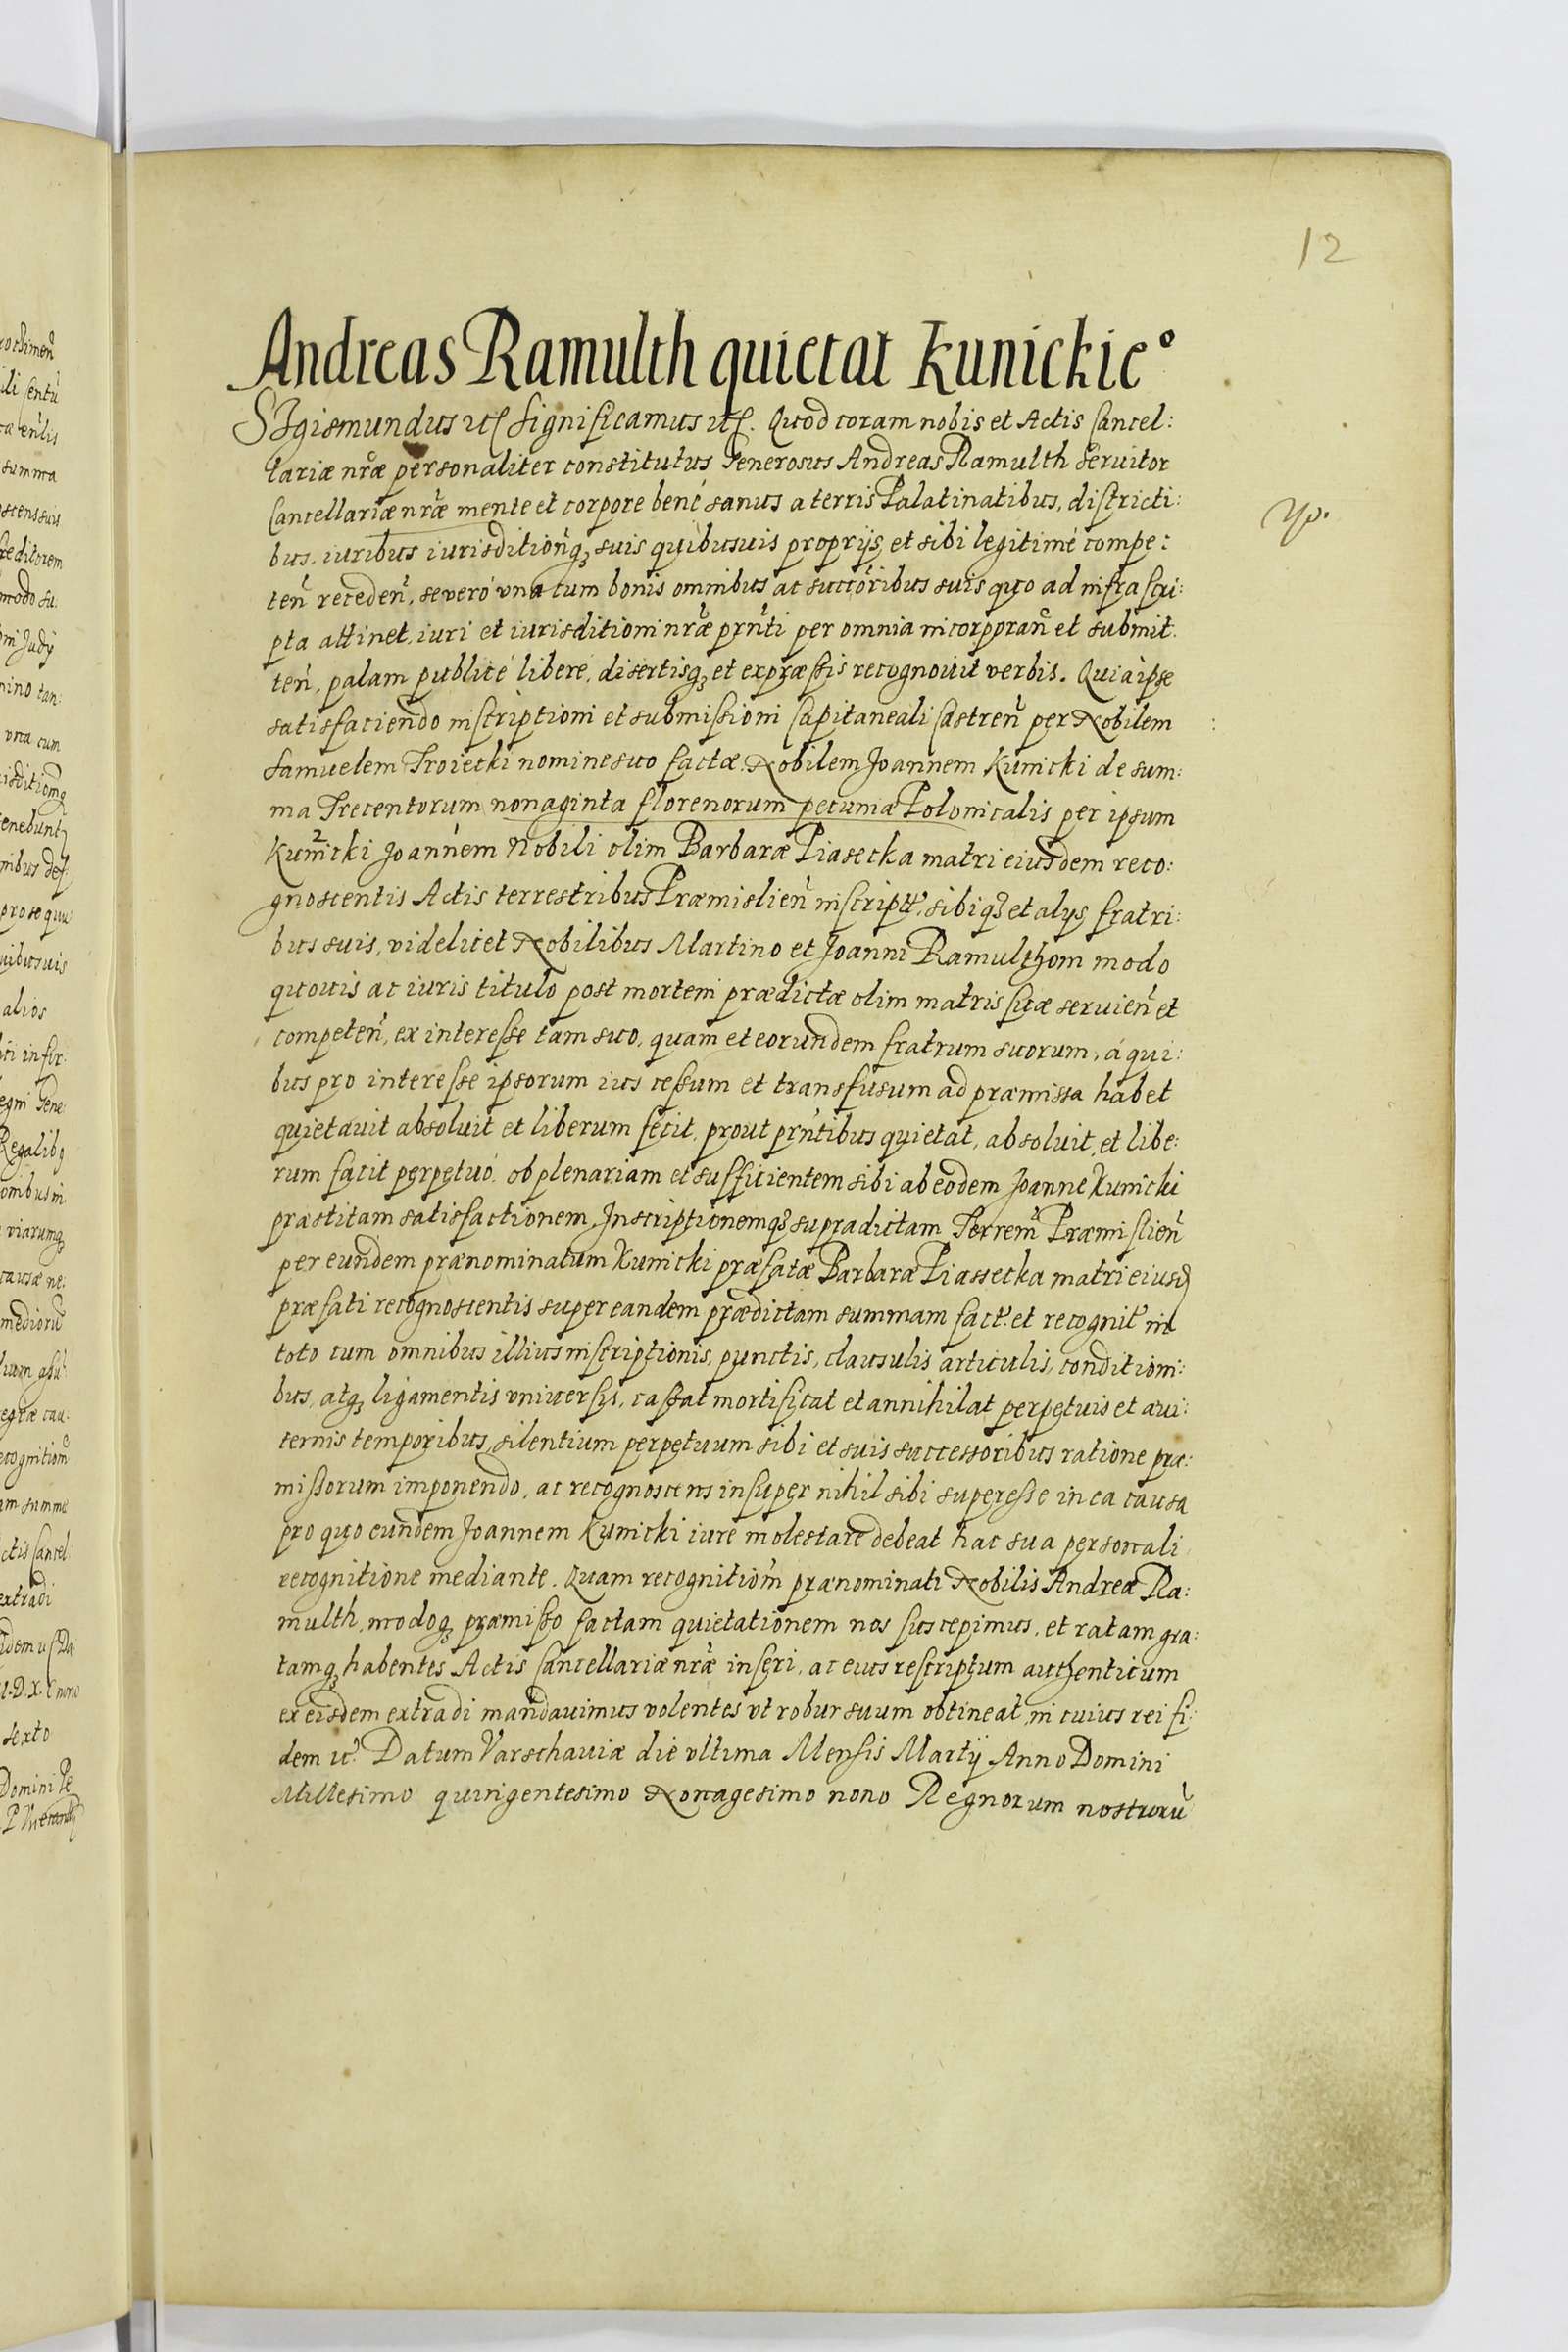 12
Andreas Ramulth quietat Kunickie°
SIgismundus etc significamus etc. Quod coram nobis et Actis Cancel:
lariæ nrae personaliter constitutus Generosus Andreas Ramulth Servitor
Cancellariæ nræ mente et corpore bene sanus a terris Palatinatibus, districti:
bus, iuribus iurisdition̄q suis quibusuis proprijs et sibi legitime compe:
ten̄ receden̄, se vero vna cum bonis omnibus ac succoribus suis quo ad infra scri:
pta attinet, iuri et iurisditioni nræ prn̄ti per omnia incorporan̄ et submit:
ten̄, palam publice libere, disertisq et expræssis recognouit verbis. Quia ipse
satisfaciendo inscriptioni et submissioni Capitaneali Castren̄ per Nobilem
Samuelem Troiecki nomine suo factæ. Nobilem Joannem Kunicki de sum:
ma Trecentorum nonaginta florenorum pecuniæ Polonicalis per ipsum
Kunicki Joannem Nobili olim Barbaræ Piasecka matri eiusdem reco:
gnoscentis Actis terrestribus Præmislien̄ inscript, sibiq et alys fratri:
bus suis, videlicet Nobilibus Martino et Joanni Ramulthom modo
quouis ac iuris titulo post mortem prædictæ olim matris suæ seruien̄ et
competen̄, ex interesse tam suo, quam et eorundem fratrum suorum, á qui:
bus pro interesse ipsorum ius cessum et transfusum ad præmissa habet
quietauit absoluit et liberum fecit, prout prn̄tibus quietat, absoluit, et libe:
rum facit perpetuó. ob plenariam et sufficientem sibi ab eodem Joanne Kunicki
præstitam satisfactionem, Inscriptionemq supradictam Terren̄ Præmislien̄
per eundem prænominatum Kunicki præfatæ Barbaræ Piassecka matri eiusd
præfati recognoscentis super eandem prædictam summam fact. et recognit in
toto cum omnibus illius inscriptionis, punctis, clausulis articulis, conditioni:
bus, atq ligamentis vniuersis, cassat mortificat et annihilat perpetuis et æui:
ternis temporibus, silentium perpetuum sibi et suis successoribus ratione præ:
missorum imponendo, ac recognoscens insuper nihil sibi superesse in ea causa
pro quo eundem Joannem Kunicki iure molestare debeat hac sua personali
recognitione mediante. Quam recognition̄ prænominati Nobilis Andreæ Ra:
multh, modoq præmisso factam quietationem nos suscepimus, et ratam gra:
tamq habentes Actis Cancellariæ nræ inseri, ac eius rescriptum authenticum
ex eisdem extradi mandauimus volentes vt robur suum obtineat, in cuius rei fi:
dem etc. Datum Varschauiæ die vltima Mensis Martij Anno Domini
Millesimo quingentesimo Nonagesimo nono Regnorum nostrorū